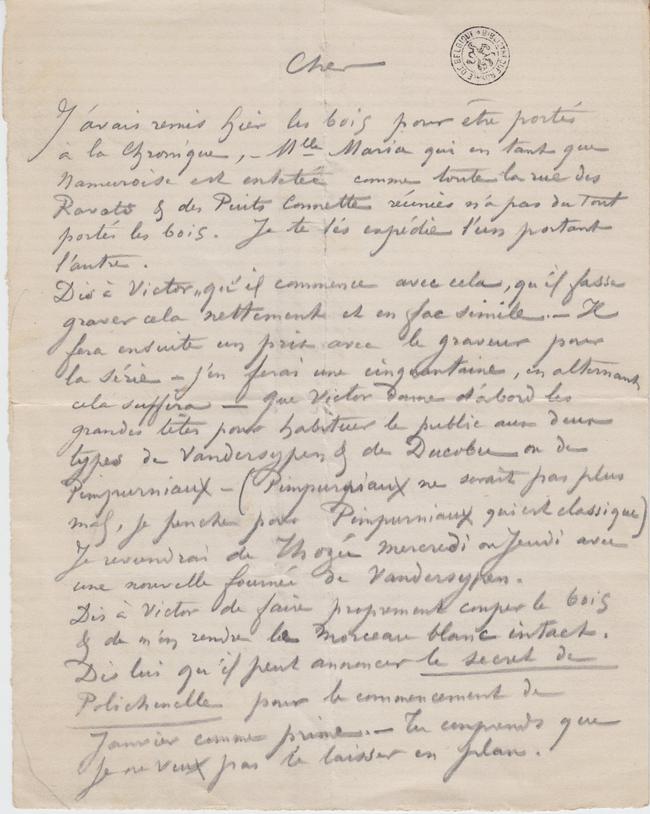 Cher
BIBLIOTHEQUE ROYALE DE BELGIQUE
J'avais remis hier les bois pour être portés
à la Chronique, - Mlle Maria qui en tant que
Namuroise est entetée comme toute la rue des
Ravets & des Puits Connette réunies n'a pas du tout
portés les bois. Je te les expédie l'un portant
l'autre.
Dis à Victor, qu'il commence avec cela, qu'il fasse
graver cela nettement et en fac simile. - Il
fera ensuite un prix avec le graveur pour
la série - j'en ferai une cinquantaine, en alternant
cela suffira - que Victor donne d'abord les
grandes têtes pour habituer le public aux deux
types de Vandersypen & de Ducobu ou de
Pimpurniaux - (Pimpurniaux ne serait pas plus
mal, je penche pour Pimpurniaux qui est classique)
Je reviendrai de Thozée mercredi ou Jeudi avec
une nouvelle fournée de Vandersypen.
Dis à Victor de faire proprement couper le bois
& de m'en rendre le morceau blanc intact.
Dis lui qu'il peut annoncer le secret de
Polichinelle pour le commencement de
Janvier comme prime. - Tu comprends que
je ne veux pas te laisser en plan.